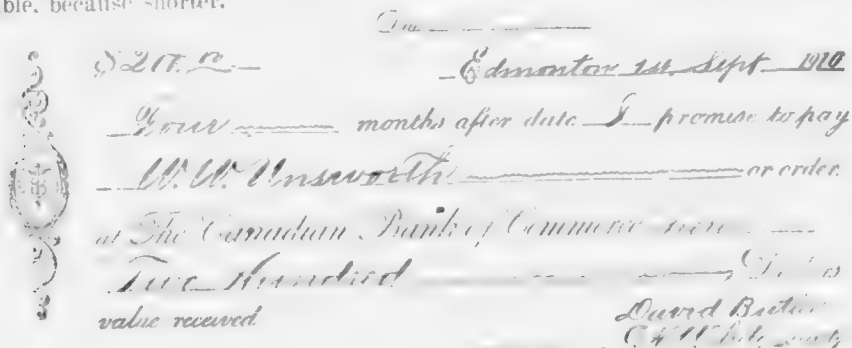 ble, because shorter.
Due
Edmonton 1st Sept 1910
Four months after date I promise to pay
W. W. Unsworth or order
at The Canadian Bank of Commerce here
Two Hundred
value received
David